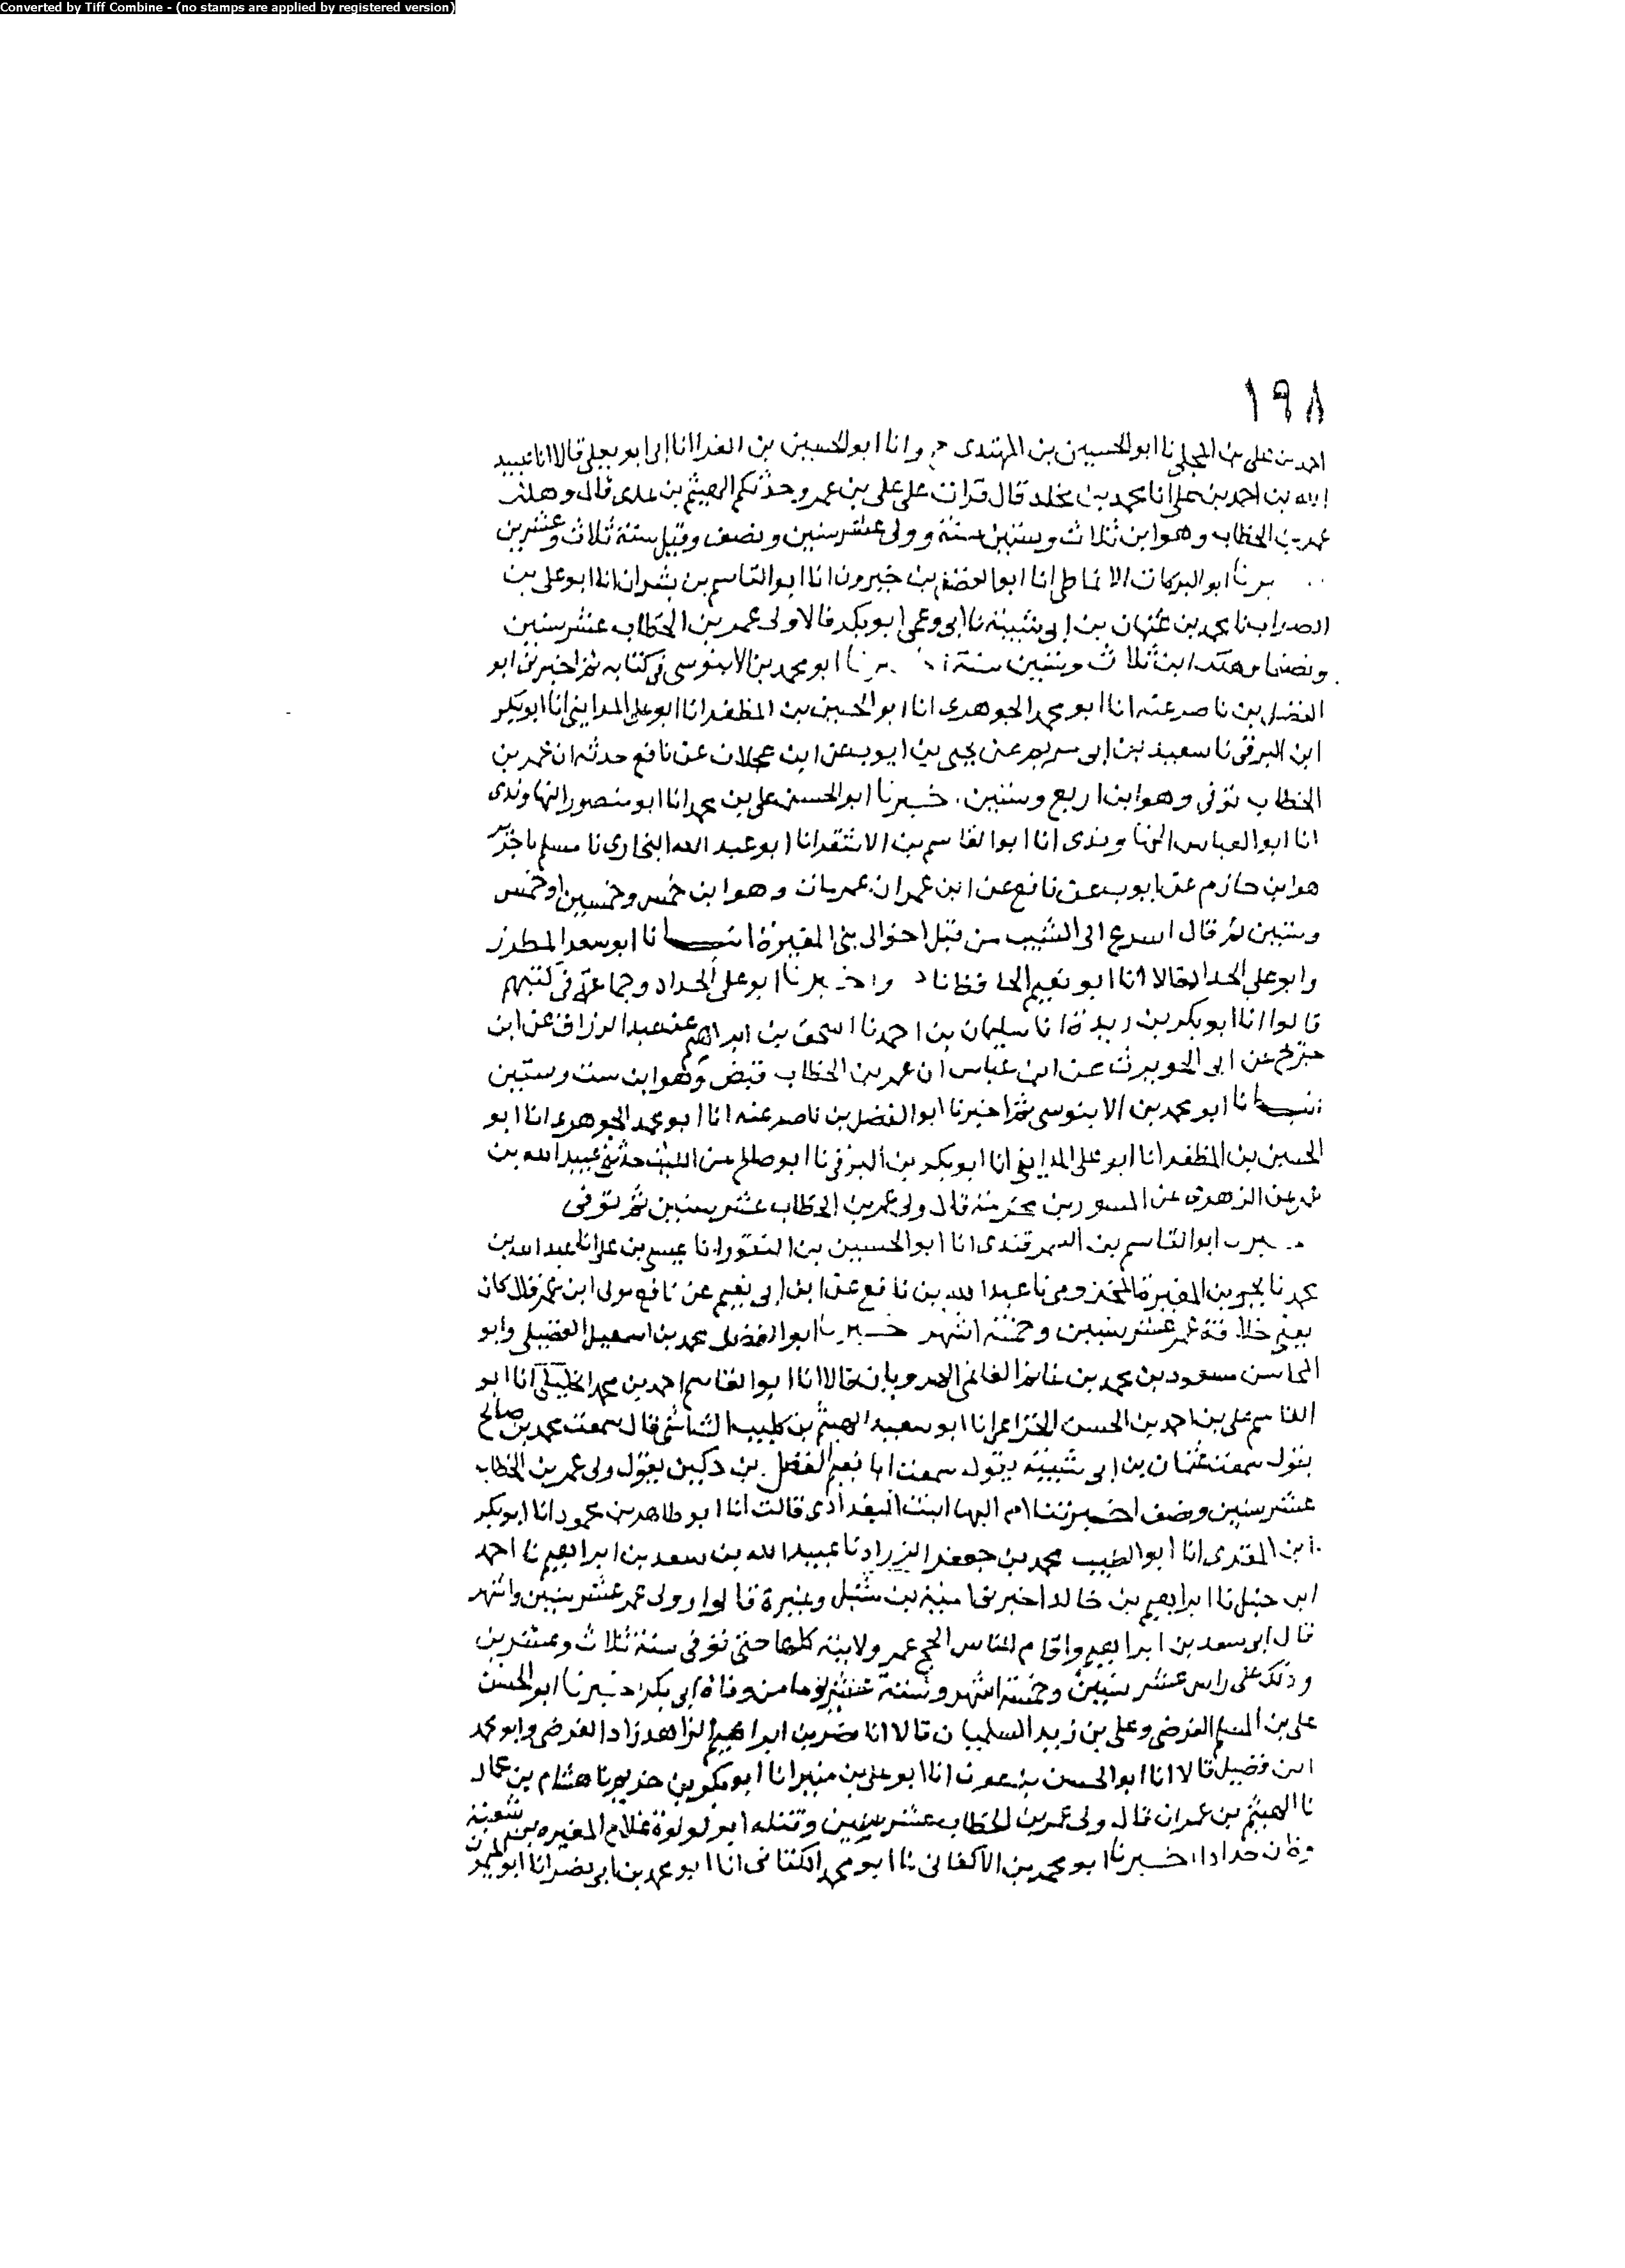 Converted by Tiff Combine - (no stamps are applied by registered version)
١٩٨
احمد بن على بن المجلى نا ابو الحسين بن المهتدى ح وانا ابو الحسين بن الفرا انا ابى ابو يعلى قالا انا عبيد
الله بن احمد بن على انا محمد بن مخلد قال قرات على على بن عمرو حدثكم الهيثم بن عدى قال وهلك
عمر بن الخطاب وهو ابن ثلاث وستين سنة وولى عشر سنين ونصف وقتل سنة ثلاث وعشرين
برنا ابو البركات الانماطى انا ابو الفضل بن خيرون انا ابو القاسم بن بشران انا ابو على بن
الصواف نا محمد بن عثمان بن ابى شيبة نا ابى وعمى ابو بكر قالا ولى عمر بن الخطاب عشر سنين
ونصفا وهلك ابن ثلاث وستين سنة برنا ابو محمد بن الابنوسى فى كتابه ثم اخبرنى ابو
الفضل بن ناصر عنه انا ابو محمد الجوهرى انا ابو الحسين بن المظفر انا ابو على المداينى انا ابو بكر
ابن البرقى نا سعيد بن ابى مريم عن يحيى بن ايوب عن ابن عجلان عن نافع حدثه ان عمر بن
الخطاب توفى وهو ابن اربع وستين خبرنا ابو الحسن على بن محمد انا ابو منصور النهاوندى
انا ابو العباس النهاوندى انا ابو القاسم بن الاشقر انا ابو عبد الله البخارى نا مسلم نا جرير
هو ابن حازم عن ايوب عن نافع عن ابن عمر ان عمر مات وهو ابن خمس وخمسين او خمس
وستين ثم قال اسرع الى الشيب من قبل اخوالى بنى المغيرة انبانا ابو سعد المطرز
وابو على الحداد قالا انا ابو نعيم الحافظ نا د واخبرنا ابو على الحداد وجماعة فى كتبهم
قالوا انا ابو بكر بن ريذة انا سليمان بن احمد نا اسحق بن ابراهيم عن عبد الرزاق عن ابن
جريج عن ابى الحويرث عن ابن عباس ان عمر بن الخطاب قبض وهو ابن ست وستين
انبانا ابو محمد بن الابنوسى ثم اخبرنا ابو الفضل بن ناصر عنه انا ابو محمد الجوهرى انا ابو
الحسين بن المظفر انا ابو على المداينى انا ابو بكر بن البرقى نا ابو صالح عن الليث حدثنى عبيد الله بن
عمر عن الزهرى عن المسور بن مخرمة قال ولى عمر بن الخطاب عشر سنين ثم توفى
برنا ابو القاسم بن السمرقندى انا ابو الحسين بن النقور انا عيسى بن على انا عبد الله بن
محمد نا يحيى بن المغيرة المخزومى نا عبد الله بن نافع عن ابن ابى نعيم عن نافع مولى ابن عمر قال كان
يعنى خلافة عمر عشر سنين وخمسة اشهر خبرنا ابو الفضل محمد بن اسمعيل الفضيلى وابو
المحاسن مسعود بن محمد بن غانم الغانمى الهرويان قالا انا ابو القاسم احمد بن محمد الخليلى انا ابو
القاسم على بن احمد بن الحسن الخزاعى انا ابو سعيد الهيثم بن كليب الشاشى قال سمعت محمد بن صالح
يقول سمعت عثمان بن ابى شيبة يقول سمعت ابا نعيم الفضل بن دكين يقول ولى عمر بن الخطاب
عشر سنين ونصف اخبرتنا ام البها ابنت البغدادى قالت انا ابو طاهر بن محمود انا ابو بكر
بن المقرى انا ابو الطيب محمد بن جعفر الزراد نا عبيد الله بن سعد بن ابراهيم نا احمد
ابن حنبل نا ابراهيم بن خالد اخبرنى امية بن شبل وغيره قالوا وولى عمر عشر سنين واشهر
قال ابى سعد بن ابراهيم واقام للناس الحج عمر ولايته كلها حتى توفى سنة ثلاث وعشرين
وذلك على راس عشر سنين وخمسة اشهر وستة عشر يوما من وفاة ابى بكر اخبرنا ابو الحسن
على بن المسلم الفرضى وعلى بن زيد السلميان قالا انا نصر بن ابراهيم الزاهد زاد الفرضى وابو محمد
ابن فضيل قالا انا ابو الحسن بن عوف انا ابو على بن منير انا ابو بكر بن خريم نا هشام بن عمار
نا الهيثم بن عمران قال ولى عمر بن الخطاب عشر سنين وقتله ابو لولوة غلام المغيره بن شعبة
وكان حدادا اخبرنا ابو محمد بن الاكفانى نا ابو محمد الكتانى انا ابو محمد بن ابى نصر انا ابو الميمون